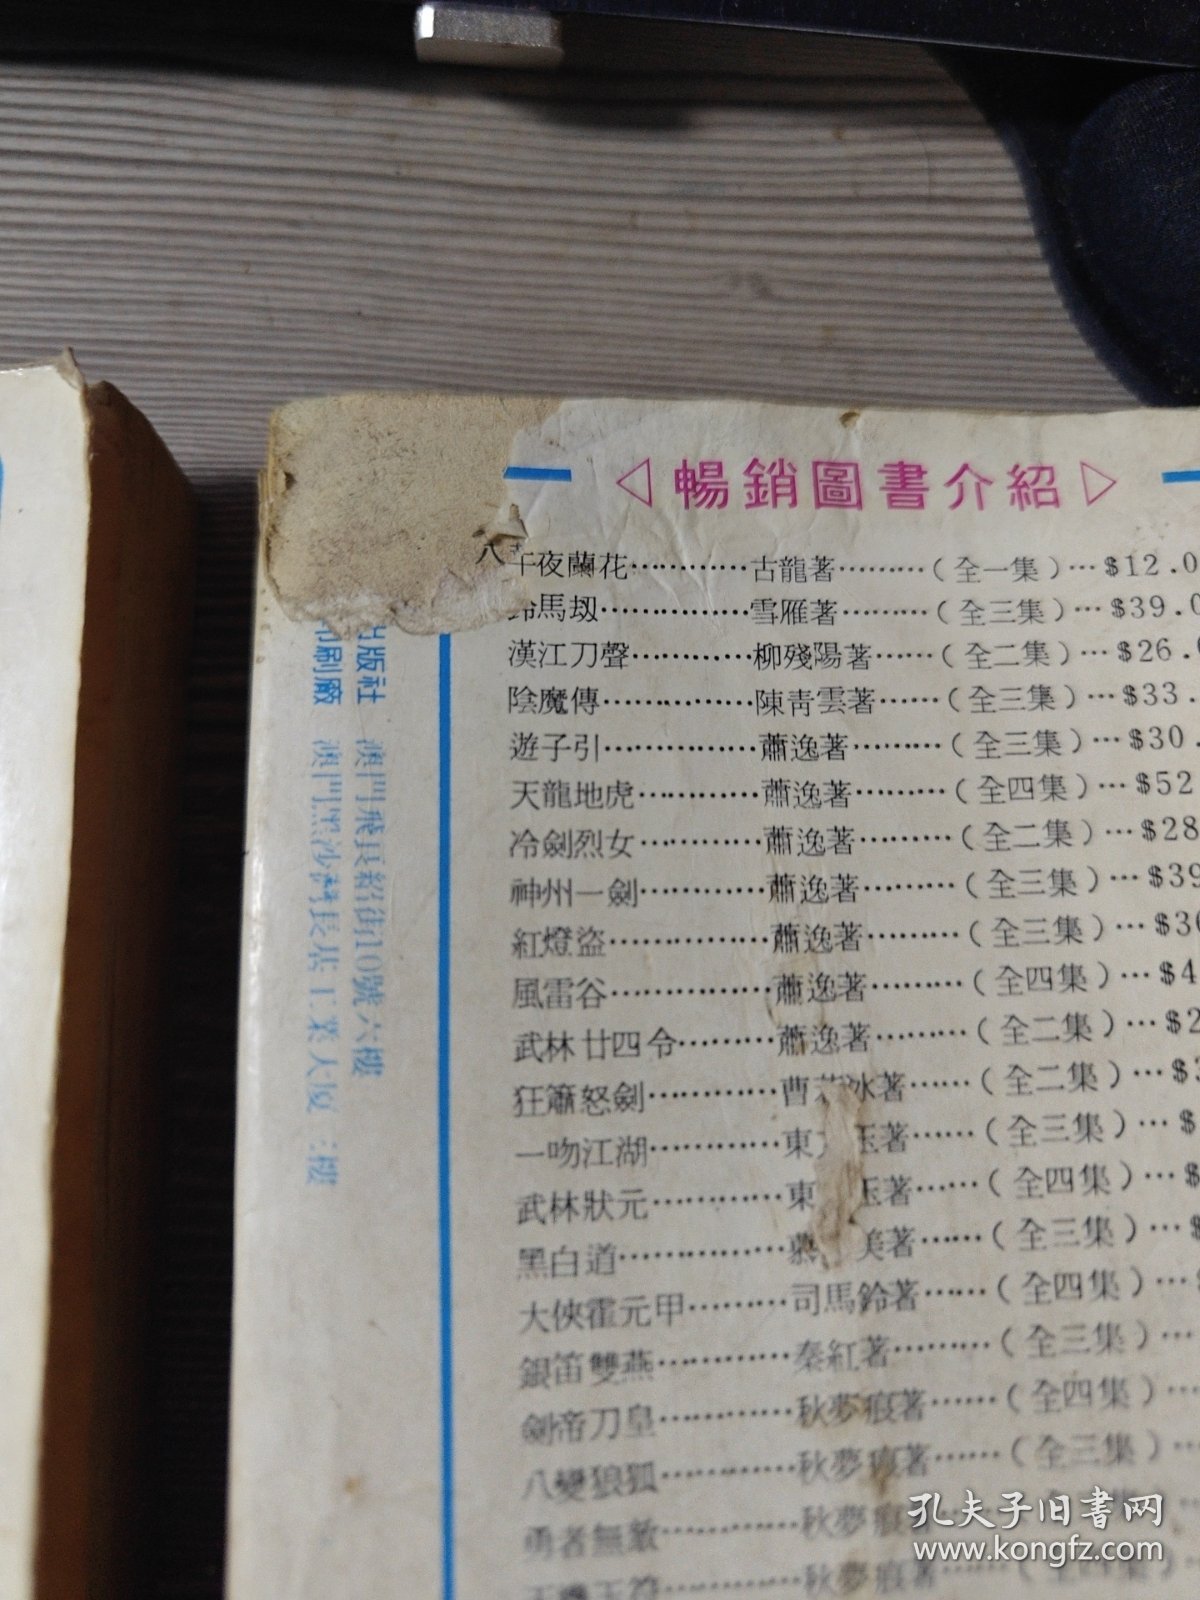 ◁暢銷圖書介紹▷
午夜蘭花…………古龍著………(全一集)…$12.0
馬刼……………雪雁著………(全三集)…$39.0
漢江刀聲…………柳殘陽著……(全二集)…$26.0
陰魔傳……………陳靑雲著……(全三集)…$33.
遊子引……………蕭逸著………(全三集)…$30.
天龍地虎…………蕭逸著………(全四集)…$52
冷劍烈女…………蕭逸著………(全二集)…$28
神州一劍…………蕭逸著………(全三集)…$39
紅燈盜……………蕭逸著………(全三集)…$36
風雷谷……………蕭逸著………(全四集)…$4
武林廿四令………蕭逸著………(全二集)…$2
狂簫怒劍…………曹 冰著……(全二集)…$3
一吻江湖…………東 玉著……(全三集)…$
武林狀元…………東 玉著……(全四集)…$
黑白道……………慕 美著……(全三集)…$
大俠霍元甲………司馬鈴著……(全四集)…
銀笛雙燕…………秦紅著………(全三集)…
劍帝刀皇…………秋夢痕著……(全四集)…
八變狼狐…………秋夢痕著……(全三集)…
勇者無敵…………秋夢痕
秋夢痕著
出版社 澳門飛良紹街10號六樓
印刷廠 澳門黑沙灣長基工業大廈 樓
孔夫子旧书网
www.kongfz.com